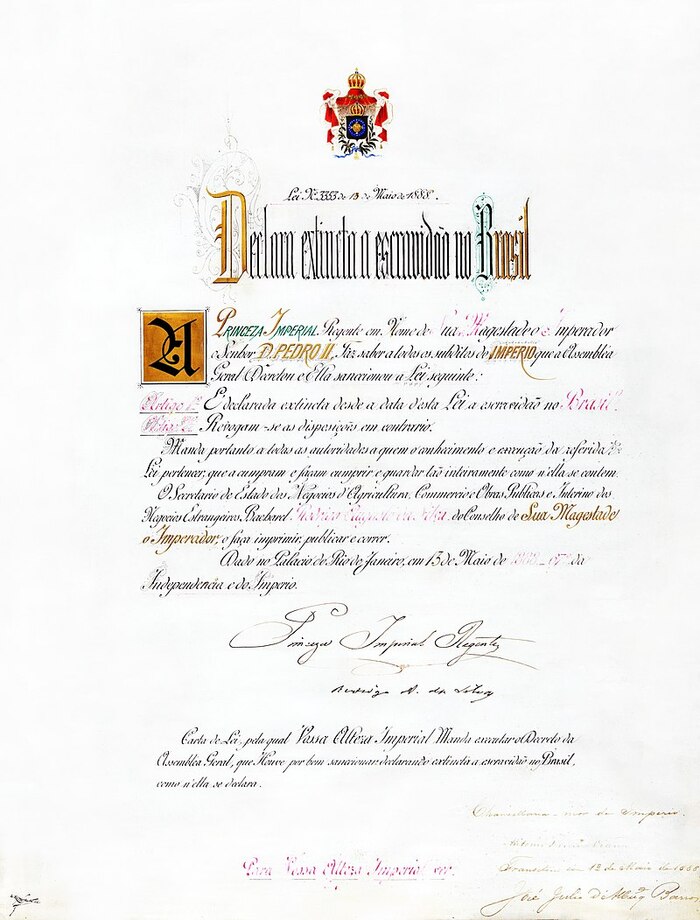 Lei Nº 3353 de 13 de Maio de 1888.
Declara extincta a escravidão no Brasil
A PRINCEZA IMPERIAL Regente em Nome de Sua Magestade o Imperador
o Senhor D. PEDRO II, Faz saber a todos os subditos do IMPERIO que a Assembléa
Geral Decretou e Ella sanccionou a Lei seguinte:
Artigo 1º É declarada extincta desde a data desta Lei a escravidão no Brasil.
Artigo 2º Revogam-se as disposições em contrario.
Manda portanto a todas as autoridades a quem o conhecimento e execução da referida
Lei pertencer, que a cumpram e façam cumprir e guardar tão inteiramente como n'ella se contem.
O Secretario de Estado dos Negocios d'Agricultura, Commercio e Obras Publicas e Interino dos
Negocios Estrangeiros, Bacharel Rodrigo Augusto da Silva, do Conselho de Sua Magestade
o Imperador, o faça imprimir, publicar e correr.
Dado no Palacio do Rio de Janeiro, em 13 de Maio de 1888 - 67º da
Independencia e do Imperio.
Princeza Imperial Regente
Rodrigo A. da Silva
Carta de Lei, pela qual Vossa Alteza Imperial Manda executar o Decreto da
Assembléa Geral, que Houve por bem sanccionar declarando extincta a escravidão no Brasil,
como n'ella se declara.
Chancellaria-mór do Imperio.
Transitou em 13 de Maio de 1888
José Julio d'Albuqº Barros
Para Vossa Alteza Imperial ver.